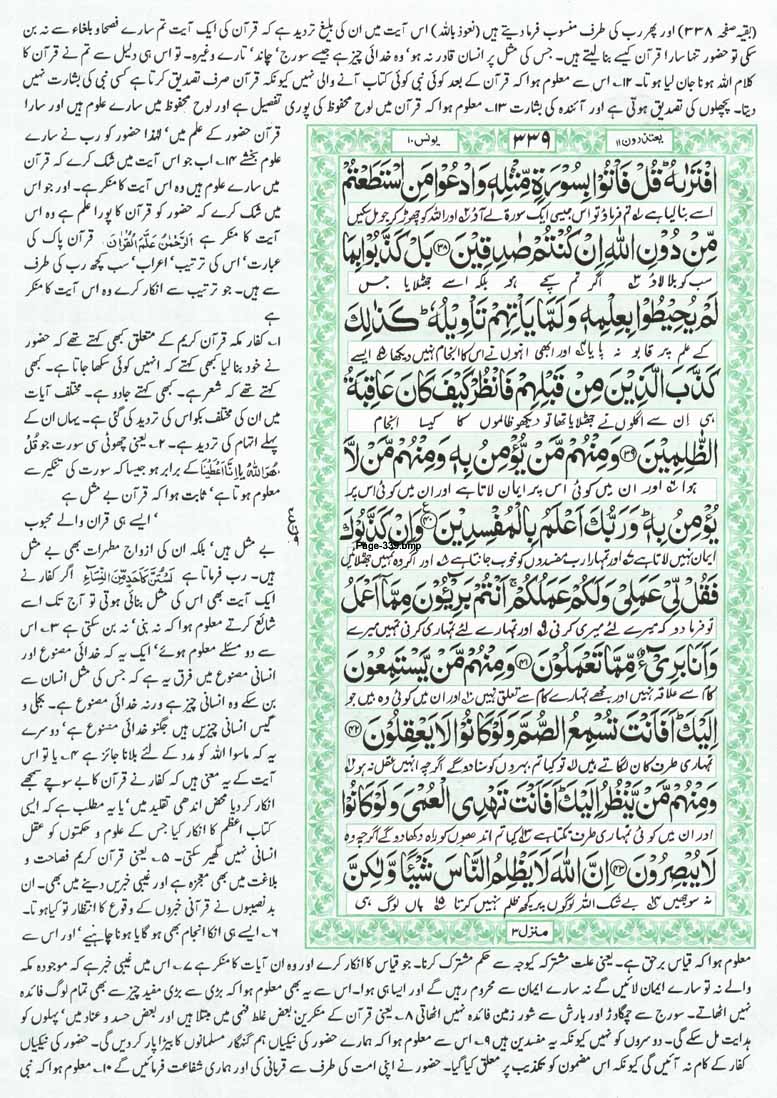 (بقیہ صفحہ ۳۳۸) اور پھر رب کی طرف منسوب فرما دیتے ہیں (نعوذ باللہ) اس آیت میں ان کی بلیغ تردید ہے کہ قرآن کی ایک آیت تم سارے فصحاو بلغاء سے نہ بن
سکی تو حضور تنہا سارا قرآن کیسے بنا لیتے ہیں۔ جس کی مثل پر انسان قادر نہ ہو' وہ خدائی چیز ہے جیسے سورج' چاند' تارے وغیرہ۔ تو اس ہی دلیل سے تم نے اس کا
کلام اللہ ہونا جان لیا ہوتا۔ ۱۲۔ اس سے معلوم ہوا کہ قرآن کے بعد کوئی نبی کوئی کتاب آنے والی نہیں کیونکہ قرآن صرف تصدیق کرتا ہے کسی نبی کی بشارت نہیں
دیتا۔ پچھلوں کی تصدیق ہوتی ہے اور آئندہ کی بشارت ۱۳۔ معلوم ہوا کہ قرآن میں لوح محفوظ کی پوری تفصیل ہے اور لوح محفوظ میں سارے علوم ہیں اور سارا
قرآن حضور کے علم میں' لہٰذا حضور کو رب نے سارے
علوم بخشے ۱۴۔ اب جو اس آیت میں شک کرے کہ قرآن
میں سارے علوم ہیں وہ اس آیت کا منکر ہے۔ اور جو اس
میں شک کرے کہ حضور کو قرآن کا پورا علم ہے وہ اس
آیت کا منکر ہے اَلرَّحْمٰنُ عَلَّمَ الْقُرْاٰنَ۔ قرآن پاک کی
عبارت' اس کی ترتیب' اعراب' سب کچھ رب کی طرف
سے ہیں۔ جو ترتیب سے انکار کرے وہ اس آیت کا منکر
ہے
۱۔ کفار مکہ قرآن کریم کے متعلق کبھی کہتے تھے کہ حضور
نے خود بنا لیا کبھی کہتے کہ انہیں کوئی سکھا جاتا ہے۔ کبھی
کہتے تھے کہ شعر ہے۔ کبھی کہتے جادو ہے۔ مختلف آیات
میں ان کی مختلف بکواس کی تردید کی گئی ہے۔ یہاں ان کے
پہلے اتہام کی تردید ہے۔ ۲۔ یعنی چھوٹی سی سورت جو قُلْ
هُوَ اللّٰهُ یا اِنَّا اَعْطَيْنَا کے برابر ہو جیسا کہ سورت کی تنکیر سے
معلوم ہوتا ہے' ثابت ہوا کہ قرآن بے مثل ہے
' ایسے ہی قران والے محبوب
بے مثل ہیں' بلکہ ان کی ازواج مطہرات بھی بے مثل
ہیں۔ رب فرماتا ہے لَسْتُنَّ كَاَحَدٍ مِّنَ النِّسَآءِ اگر کفار نے
ایک آیت بھی اس کی مثل بنائی ہوتی تو آج تک اسے
شائع کرتے معلوم ہوا کہ نہ بنی' نہ بن سکتی ہے ۳۔ اس
سے دو مسئلے معلوم ہوئے' ایک یہ کہ خدائی مصنوع اور
انسانی مصنوع میں فرق یہ ہے کہ جس کی مثل انسان سے
بن سکے وہ انسانی چیز ہے ورنہ خدائی مصنوع ہے۔ بجلی و
گیس انسانی چیزیں ہیں جگنو خدائی مصنوع ہے' دوسرے
یہ کہ ماسوا اللہ کو مدد کے لئے بلانا جائز ہے ۴۔ یا تو اس
آیت کے یہ معنی ہیں کہ کفار نے قرآن کا بے سوچے سمجھے
انکار کر دیا محض اندھی تقلید میں' یا یہ مطلب ہے کہ ایسی
کتاب اعظم کا انکار کیا جس کے علوم و حکمتوں کو عقل
انسانی نہیں گھیر سکتی۔ ۵۔ یعنی قرآن کریم فصاحت و
بلاغت میں بھی معجزہ ہے اور غیبی خبریں دینے میں بھی۔ ان
بد نصیبوں نے قرآنی خبروں کے وقوع کا انتظار تو کیا ہوتا۔
۶۔ ایسے ہی انکا انجام بھی ہو گیا ہونا چاہئیے' اور اس سے
یعتذرون ۱۱
۳۳۹
یونس ۱۰
افْتَرٰىهُ ؕ قُلْ فَاْتُوْا بِسُوْرَةٍ مِّثْلِهٖ وَادْعُوْا مَنِ اسْتَطَعْتُمْ
اسے بنا لیا ہے تم فرماؤ تو اس جیسی ایک سورۃ لے آؤ اور اللہ کو چھوڑ کر جو مل سکیں
مِّنْ دُوْنِ اللّٰهِ اِنْ كُنْتُمْ صٰدِقِيْنَ ﴿۳۸﴾ بَلْ كَذَّبُوْا بِمَا
سب کو بلا لاؤ اگر تم سچے ہو بلکہ اسے جھٹلایا جس
لَمْ يُحِيْطُوْا بِعِلْمِهٖ وَلَمَّا يَاْتِهِمْ تَاْوِيْلُهٗ ؕ كَذٰلِكَ
کے علم پر قابو نہ پایا اور ابھی انہوں نے اس کا انجام نہیں دیکھا ایسے
كَذَّبَ الَّذِيْنَ مِنْ قَبْلِهِمْ فَانْظُرْ كَيْفَ كَانَ عَاقِبَةُ
ہی ان سے اگلوں نے جھٹلایا تھا تو دیکھو ظالموں کا کیسا انجام
الظّٰلِمِيْنَ ﴿۳۹﴾ وَمِنْهُمْ مَّنْ يُّؤْمِنُ بِهٖ وَمِنْهُمْ مَّنْ لَّا
ہوا اور ان میں کوئی اس پر ایمان لاتا ہے اور ان میں کوئی اس پر
يُؤْمِنُ بِهٖ ؕ وَرَبُّكَ اَعْلَمُ بِالْمُفْسِدِيْنَ ﴿۴۰﴾ وَاِنْ كَذَّبُوْكَ
ایمان نہیں لاتا ہے اور تمہارا رب مفسدوں کو خوب جانتا ہے اور اگر وہ تمہیں جھٹلائیں
Page-339.bmp
فَقُلْ لِّيْ عَمَلِيْ وَلَكُمْ عَمَلُكُمْ ۚ اَنْتُمْ بَرِيْٓـُٔوْنَ مِمَّاۤ اَعْمَلُ
تو فرما دو کہ میرے لئے میری کرنی اور تمہارے لئے تمہاری کرنی تمہیں میرے
وَاَنَا بَرِيْٓءٌ مِّمَّا تَعْمَلُوْنَ ﴿۴۱﴾ وَمِنْهُمْ مَّنْ يَّسْتَمِعُوْنَ
کام سے علاقہ نہیں اور مجھے تمہارے کام سے تعلق نہیں اور ان میں کوئی وہ ہیں جو
اِلَيْكَ ؕ اَفَاَنْتَ تُسْمِعُ الصُّمَّ وَلَوْ كَانُوْا لَا يَعْقِلُوْنَ ﴿۴۲﴾
تمہاری طرف کان لگاتے ہیں تو کیا تم بہروں کو سنا دو گے اگرچہ انہیں عقل نہ ہو
وَمِنْهُمْ مَّنْ يَّنْظُرُ اِلَيْكَ ؕ اَفَاَنْتَ تَهْدِي الْعُمْيَ وَلَوْ كَانُوْا
اور ان میں کوئی تمہاری طرف تکتا ہے کیا تم اندھوں کو راہ دکھا دو گے اگرچہ وہ
لَا يُبْصِرُوْنَ ﴿۴۳﴾ اِنَّ اللّٰهَ لَا يَظْلِمُ النَّاسَ شَيْـًٔا وَّلٰكِنَّ
نہ سوجھیں بے شک اللہ لوگوں پر کچھ ظلم نہیں کرتا ہاں لوگ ہی
منزل ۳
معلوم ہوا کہ قیاس برحق ہے۔ یعنی علت مشترکہ کیوجہ سے حکم مشترک کرنا۔ جو قیاس کا انکار کرے اور وہ ان آیات کا منکر ہے ۷۔ اس میں غیبی خبر ہے کہ موجودہ مکہ
والے نہ تو سارے ایمان لائیں گے نہ سارے ایمان سے محروم رہیں گے اور ایسا ہی ہوا۔ اس سے یہ بھی معلوم ہوا کہ بڑی سے بڑی مفید چیز سے بھی تمام لوگ فائدہ
نہیں اٹھاتے۔ سورج سے چمگادڑ اور بارش سے شور زمین فائدہ نہیں اٹھاتی ۸۔ یعنی قرآن کے منکرین بعض غلط فہمی میں مبتلا ہیں اور بعض حسد و عناد میں' پہلوں کو
ہدایت مل سکے گی۔ دوسروں کو نہیں کیونکہ یہ مفسدین ہیں ۹۔ اس سے معلوم ہوا کہ ہمارے حضور کی نیکیاں ہم گنہگار مسلمانوں کا بیڑا پار کر دیں گی۔ حضور کی نیکیاں
کفار کے کام نہ آئیں گی کیونکہ اس مضمون کو تکذیب پر معلق کیا گیا۔ حضور نے اپنی امت کی طرف سے قربانی کی اور ہماری شفاعت فرمائیں گے ۱۰۔ معلوم ہوا کہ نبی